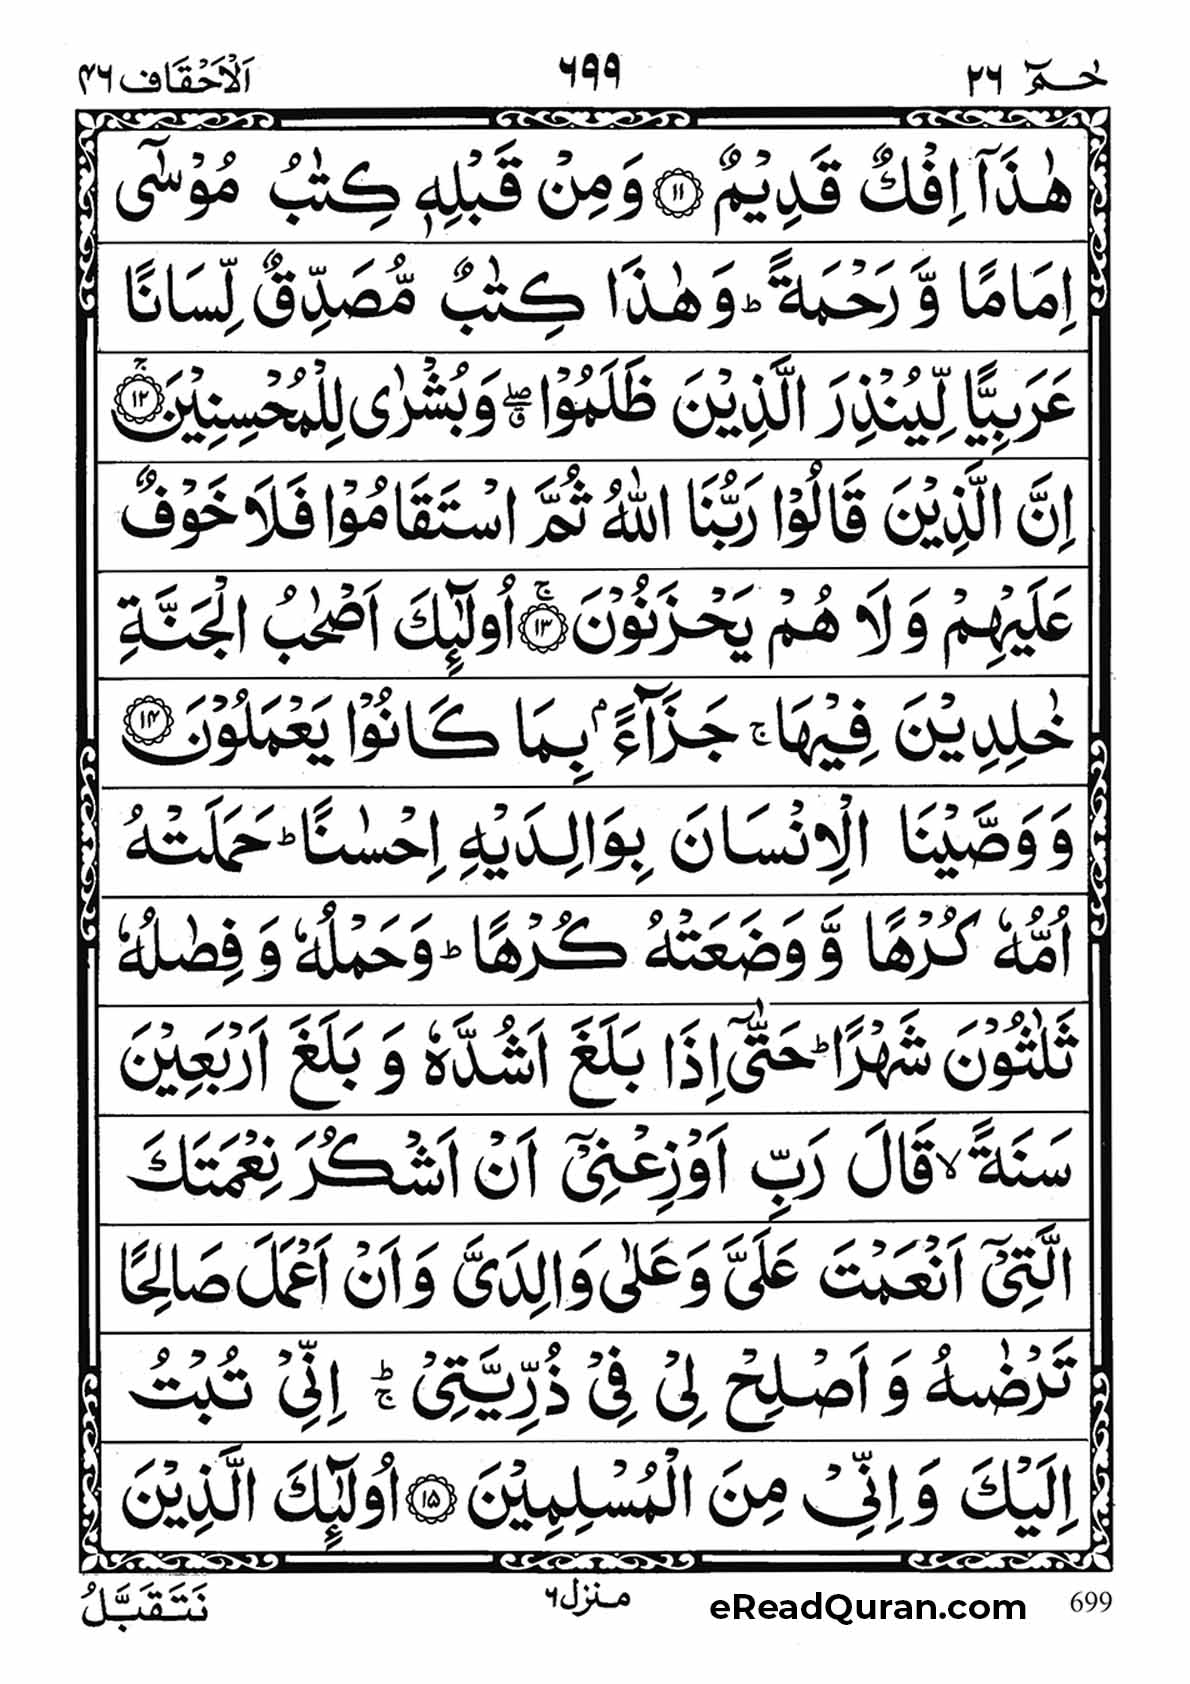 حٰمٓ ٢٦ ٦٩٩ اَلْاَحْقَاف ٤٦
هٰذَاۤ اِفْكٌ قَدِيْمٌ ١١ وَمِنْ قَبْلِهٖ كِتٰبُ مُوْسٰۤى
اِمَامًا وَّ رَحْمَةً ؕ وَ هٰذَا كِتٰبٌ مُّصَدِّقٌ لِّسَانًا
عَرَبِيًّا لِّيُنْذِرَ الَّذِيْنَ ظَلَمُوْا ۖۗ وَ بُشْرٰى لِلْمُحْسِنِيْنَ ۚ ١٢
اِنَّ الَّذِيْنَ قَالُوْا رَبُّنَا اللّٰهُ ثُمَّ اسْتَقَامُوْا فَلَا خَوْفٌ
عَلَيْهِمْ وَ لَا هُمْ يَحْزَنُوْنَ ۚ ١٣ اُولٰٓئِكَ اَصْحٰبُ الْجَنَّةِ
خٰلِدِيْنَ فِيْهَا ۚ جَزَآءًۢ بِمَا كَانُوْا يَعْمَلُوْنَ ١٤
وَ وَصَّيْنَا الْاِنْسَانَ بِوَالِدَيْهِ اِحْسٰنًا ؕ حَمَلَتْهُ
اُمُّهٗ كُرْهًا وَّ وَضَعَتْهُ كُرْهًا ؕ وَ حَمْلُهٗ وَ فِصٰلُهٗ
ثَلٰثُوْنَ شَهْرًا ؕ حَتّٰۤى اِذَا بَلَغَ اَشُدَّهٗ وَ بَلَغَ اَرْبَعِيْنَ
سَنَةً ۙ قَالَ رَبِّ اَوْزِعْنِيْۤ اَنْ اَشْكُرَ نِعْمَتَكَ
الَّتِيْۤ اَنْعَمْتَ عَلَيَّ وَ عَلٰى وَالِدَيَّ وَ اَنْ اَعْمَلَ صَالِحًا
تَرْضٰىهُ وَ اَصْلِحْ لِيْ فِيْ ذُرِّيَّتِيْ ؕۚ اِنِّيْ تُبْتُ
اِلَيْكَ وَ اِنِّيْ مِنَ الْمُسْلِمِيْنَ ١٥ اُولٰٓئِكَ الَّذِيْنَ
699 eReadQuran.com منزل ٦ نَتَقَبَّلُ